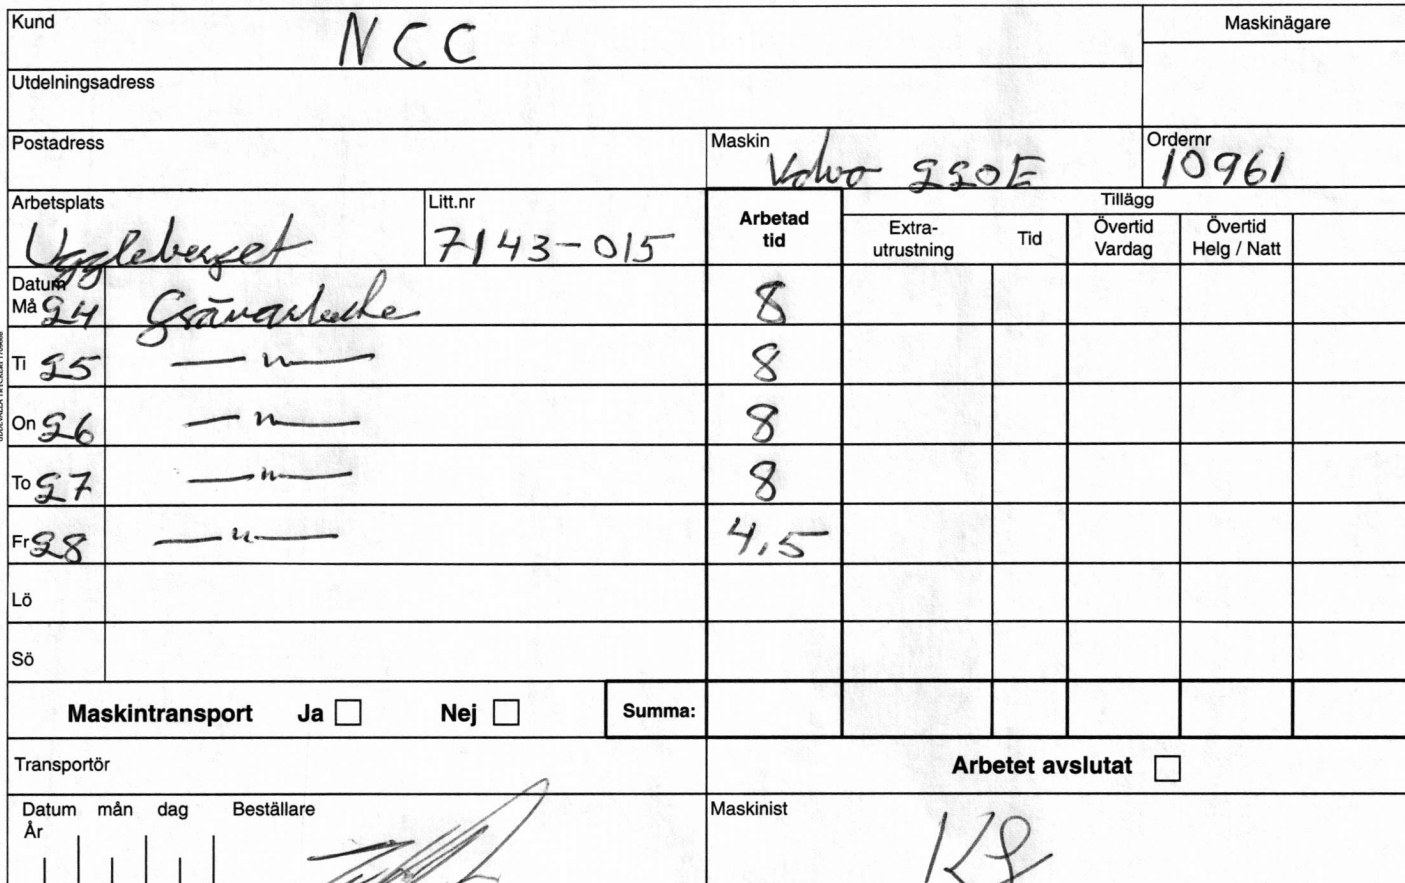 Kund NCC Maskinägare
Utdelningsadress
Postadress Maskin Volvo 220E Ordernr 10961
Arbetsplats Uggleberget Litt.nr 7143-015 Arbetad tid Tillägg
Extra-utrustning Tid Övertid Vardag Övertid Helg / Natt
Datum
Må 24 Grävarbete 8
Ti 25 —"— 8
On 26 —"— 8
To 27 —"— 8
Fr 28 —"— 4,5
Lö
Sö
Maskintransport Ja Nej Summa:
Transportör Arbetet avslutat
Datum mån dag Beställare Maskinist
År